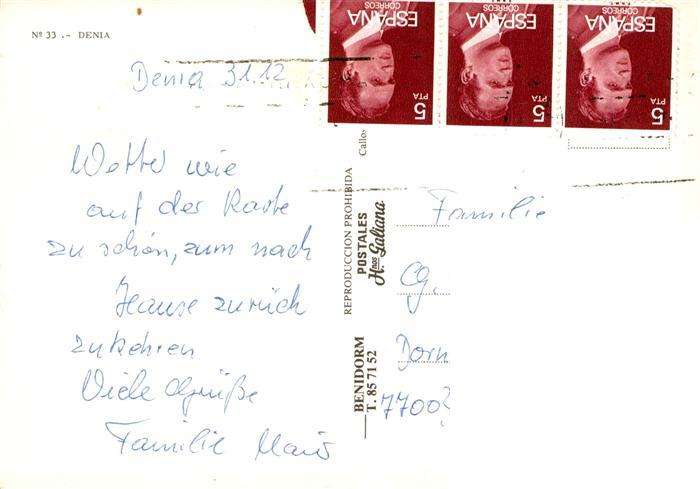 Nº 33 .- DENIA
Denia 31.12.
Wetter wie
auf der Karte
zu schön, zum nach
Hause zurück
zukehren
Viele Grüße
Familie
REPRODUCCION PROHIBIDA
POSTALES
Hnos Galiana
BENIDORM
T. 85 71 52
ESPAÑA
CORREOS
5
PTA
ESPAÑA
CORREOS
5
PTA
ESPAÑA
CORREOS
5
PTA
Familie
Dorn
7700?